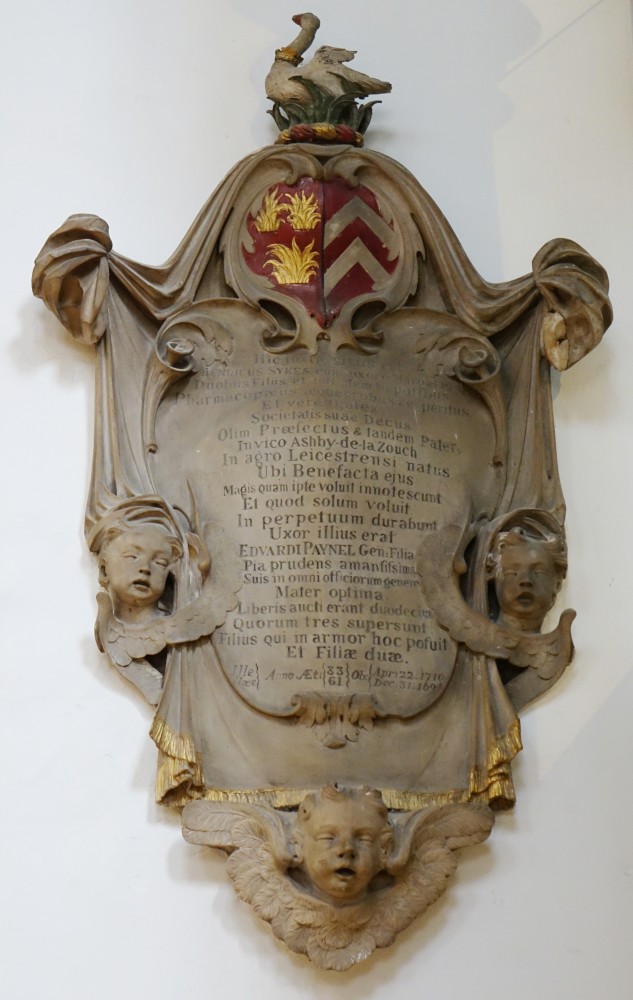 Hic
SYKES
Duobus Filiis et
Pharmacopœus peritus
Et vere
Societatis suæ Decus
Olim Præfectus & tandem Pater,
In vico Ashby-de-la Zouch
In agro Leicestrensi natus
Ubi Benefacta ejus
Magis quam ipse voluit innotescunt
Et quod solum voluit
In perpetuum durabunt
Uxor illius erat
EDVARDI PAYNEL Gen: Filia
Pia prudens amansissima
Suis in omni officiorum genere
Mater optima
Liberis aucti erant duodecim
Quorum tres supersunt
Filius qui in armor hoc posuit
Et Filiæ duæ.
Ille} Anno Æt: {83 Ob: {Apr: 22. 1710
{61 {Dec. 31.